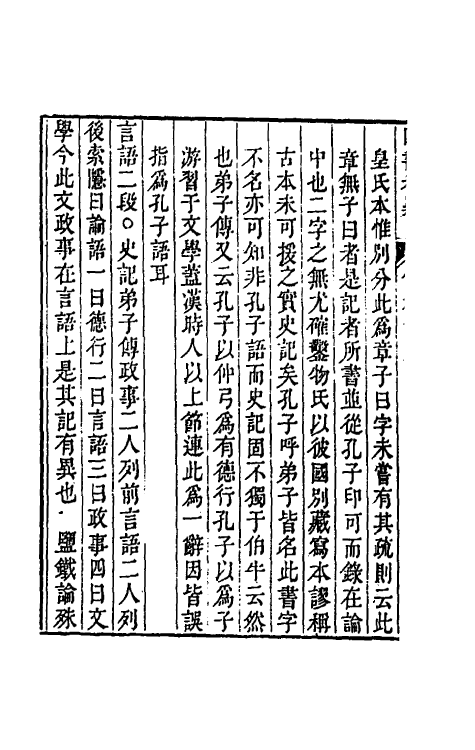 皇氏本惟別分此為章子曰字未嘗有其疏則云此
章無子曰者是記者所書並從孔子印可而錄在論
中也二字之無尤確鑿物氏以彼國別藏寫本謬稱
古本未可援之實史記矣孔子呼弟子皆名此書字
不名亦可知非孔子語而史記固不獨于伯牛云然
也弟子傳又云孔子以仲弓為有德行孔子以為子
游習于文學蓋漢時人以上節連此為一辭因皆誤
指為孔子語耳
言語二段○史記弟子傳政事二人列前言語二人列
後索隱曰論語一曰德行二曰言語三曰政事四曰文
學今此文政事在言語上是其記有異也．鹽鐵論殊